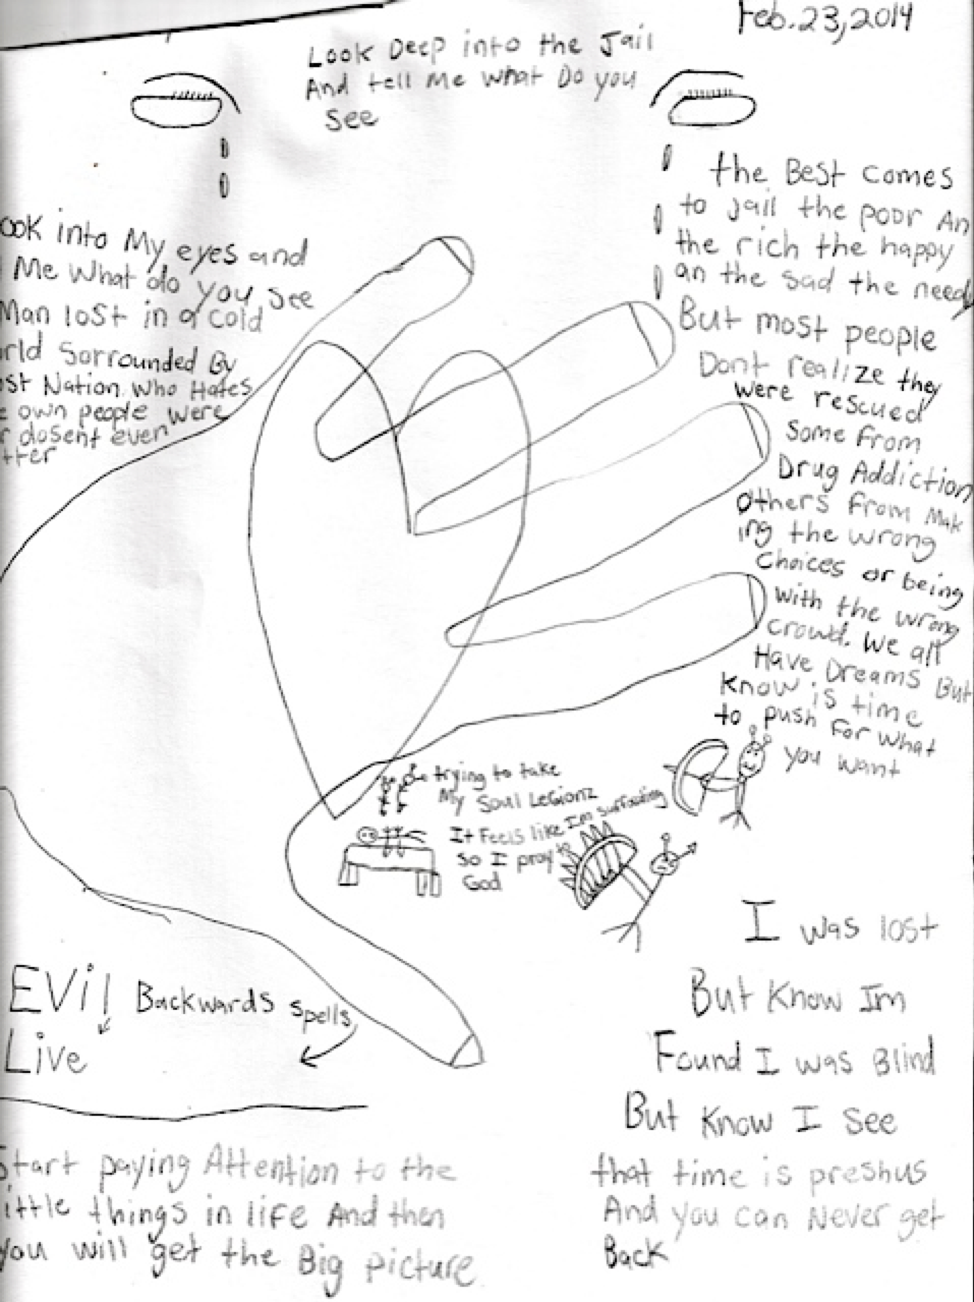 Feb. 23, 2014
Look Deep into the Jail
And tell Me what Do you
See
ook into My eyes and
Me What do you see
Man lost in a cold
rld Sorrounded By
st Nation Who Hates
e own people were
r dosent even
tter
the Best comes
to jail the poor An
the rich the happy
an the sad the need
But most people
Dont realize they
were rescued
Some from
Drug Addiction
others from Mak
ing the wrong
choices or being
with the wrong
crowd. We all
Have Dreams But
Know is time
to push for what
you want
trying to take
My Soul Legionz
It Feels like Im surfocating
so I pray to
God
I was lost
But Know Im
Found I was Blind
But Know I see
that time is preshus
And you can Never get
Back
EVil Backwards spells
Live
Start paying Attention to the
ittle things in life And then
you will get the Big picture